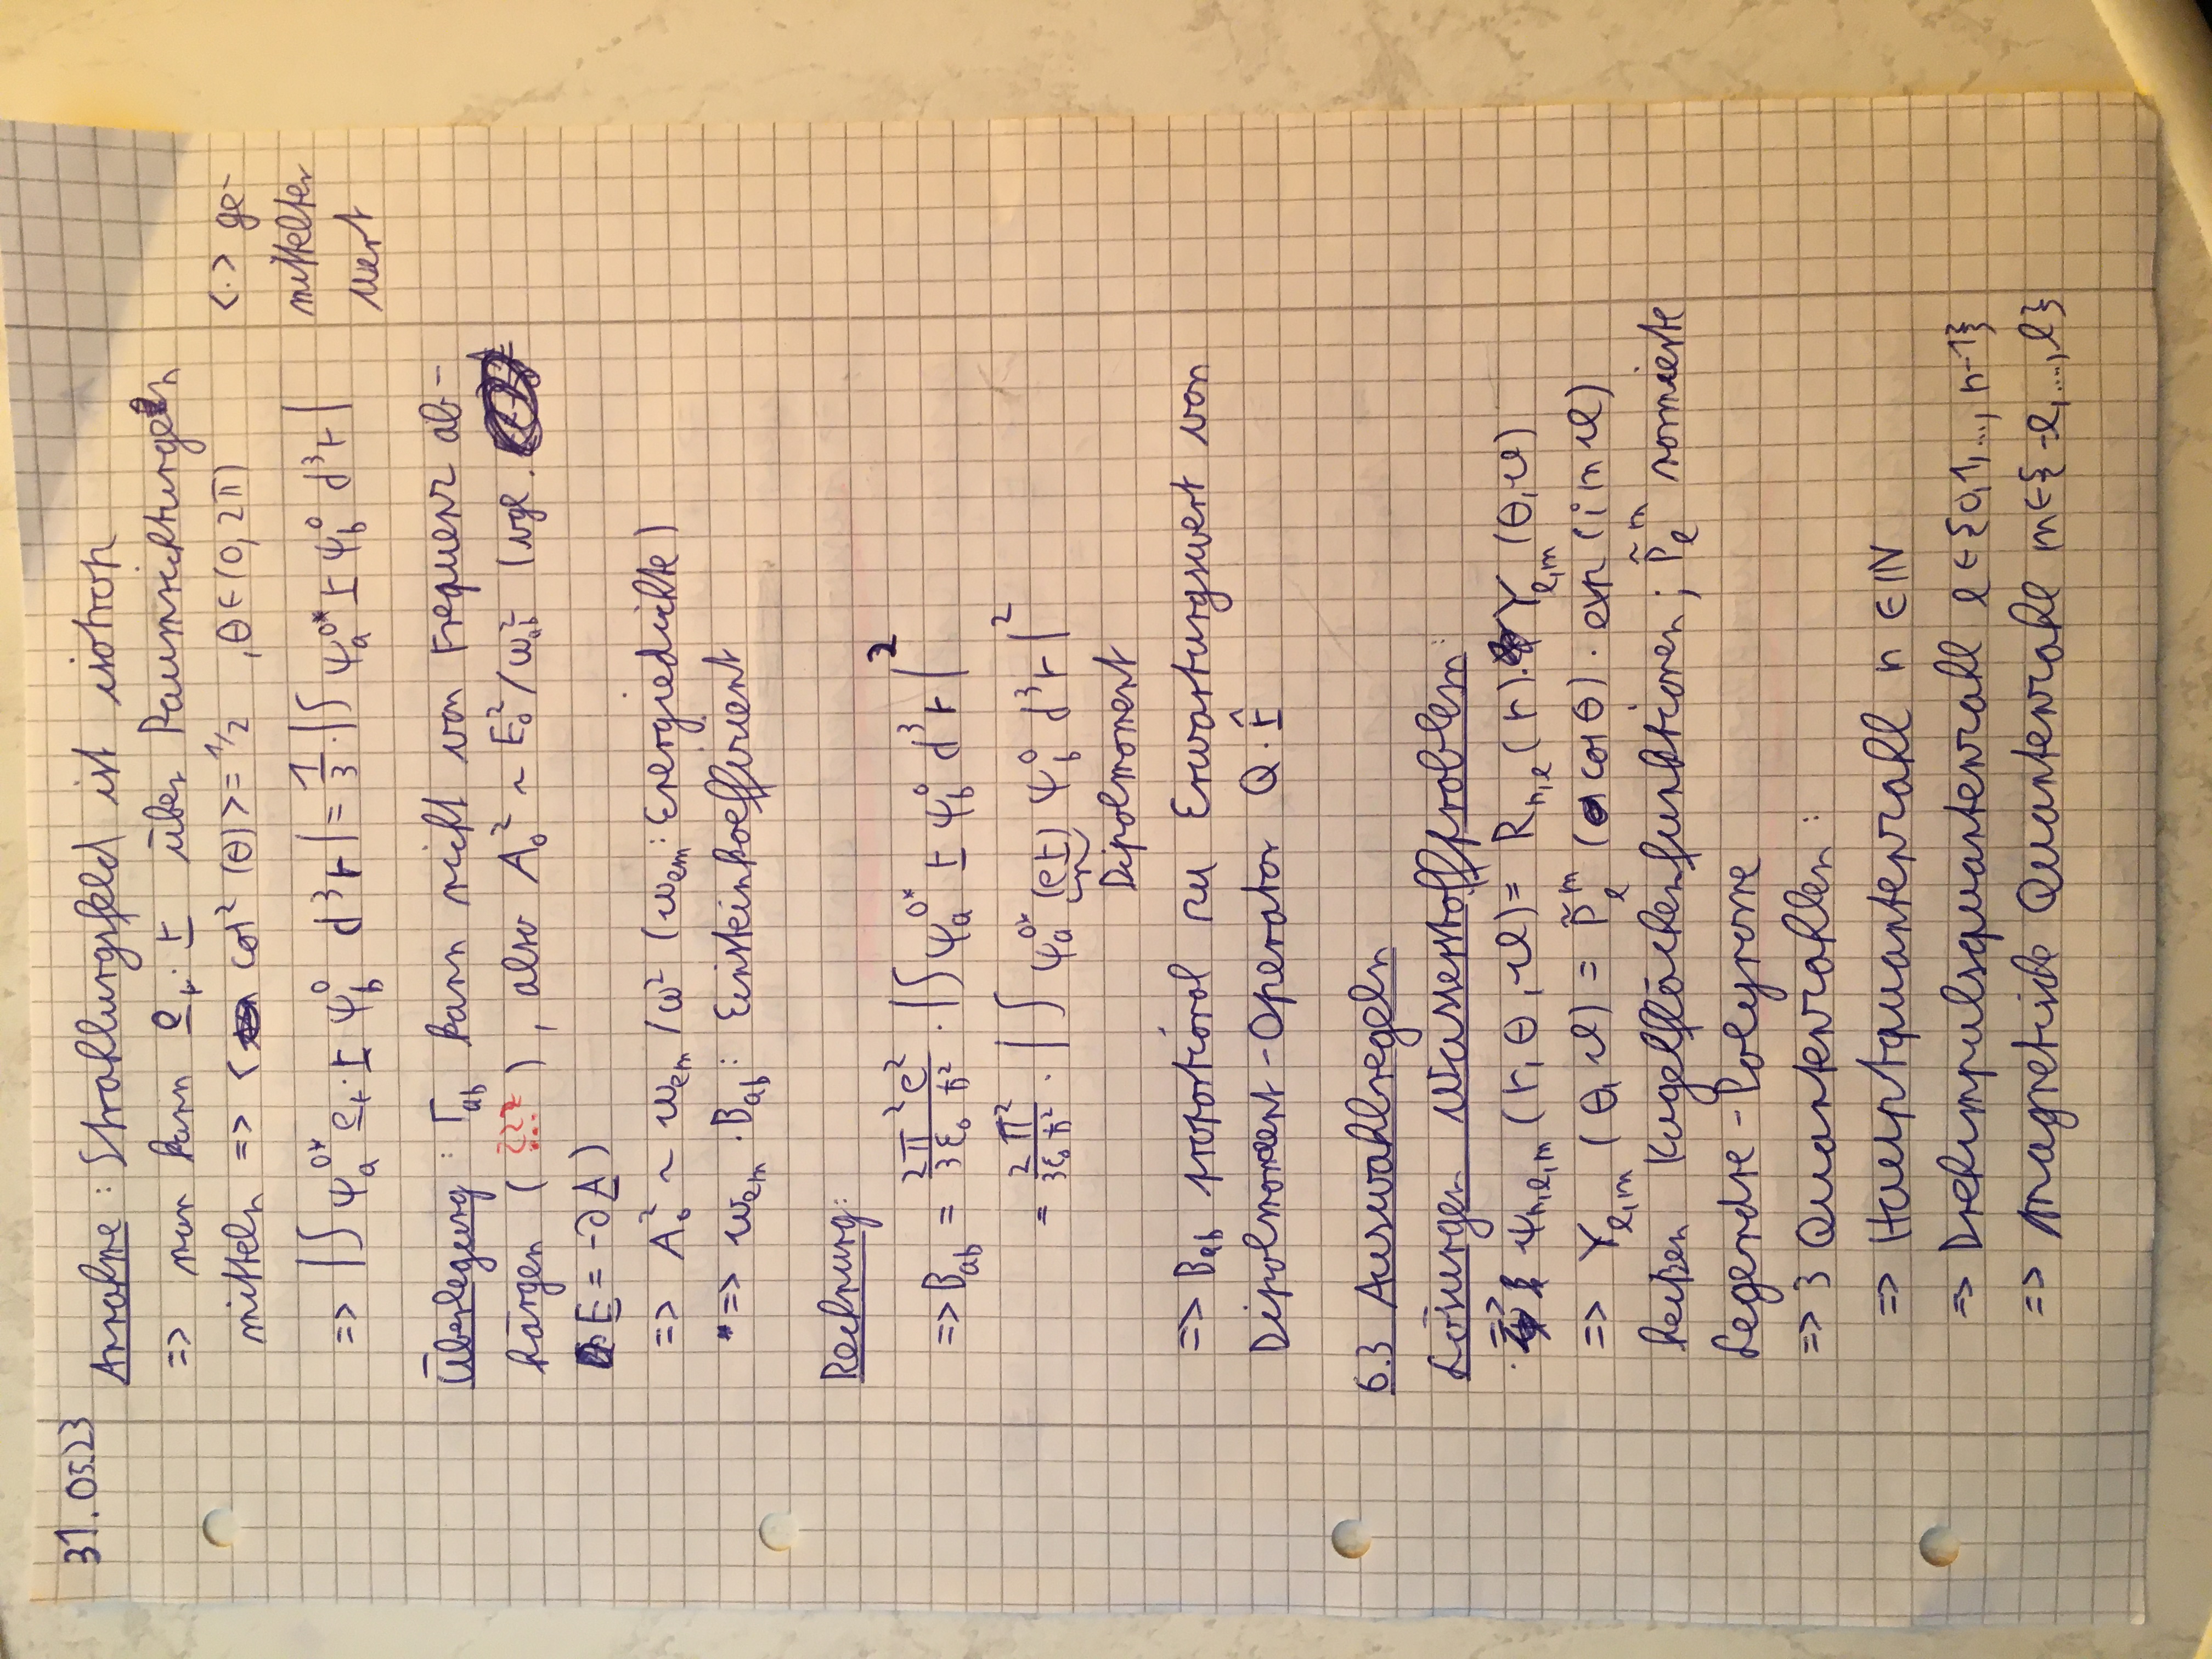 31.05.23
Annahme: Strahlungsfeld ist isotrop
=> man kann e_r · r über Raumrichtungen
mitteln => < cos² (θ)> = 1/2 , θ ∈ (0, 2π)
<·> ge-
mittelter
Wert
=> |∫ ψ_a^0* e_r · r ψ_b^0 d³r| = 1/3 · |∫ ψ_a^0* r ψ_b^0 d³r|
Überlegung: Γ_ab kann nicht von Frequenz ab-
hängen ( ??? ), also A_0² ~ E_0² / ω_ab² (vgl.
E = -∂ A )
=> A_0² ~ w_em / ω² (w_em: Energiedichte)
* => w_em · B_ab: Einsteinkoeffizient
Rechnung:
=> B_ab = 2π²e² / 3ε_0 ħ² · |∫ ψ_a^0* r ψ_b^0 d³r|²
= 2π² / 3ε_0 ħ² · |∫ ψ_a^0* (e r) ψ_b^0 d³r|²
Dipolmoment
=> B_ab proportional zu Erwartungswert von
Dipolmoment-Operator Q · r̂
6.3 Auswahlregeln
Lösungen Wasserstoffproblem:
=> ψ_n,l,m (r, θ, φ) = R_n,l (r) · Y_l,m (θ, φ)
=> Y_l,m (θ, φ) = P̃_l^m (cos θ) · exp (i m φ)
heißen Kugelflächenfunktionen; P̃_l^m normierte
Legendre-Polynome
=> 3 Quantenzahlen:
=> Hauptquantenzahl n ∈ ℕ
=> Drehimpulsquantenzahl l ∈ {0,1,..., n-1}
=> Magnetische Quantenzahl m ∈ {-l,...., l}